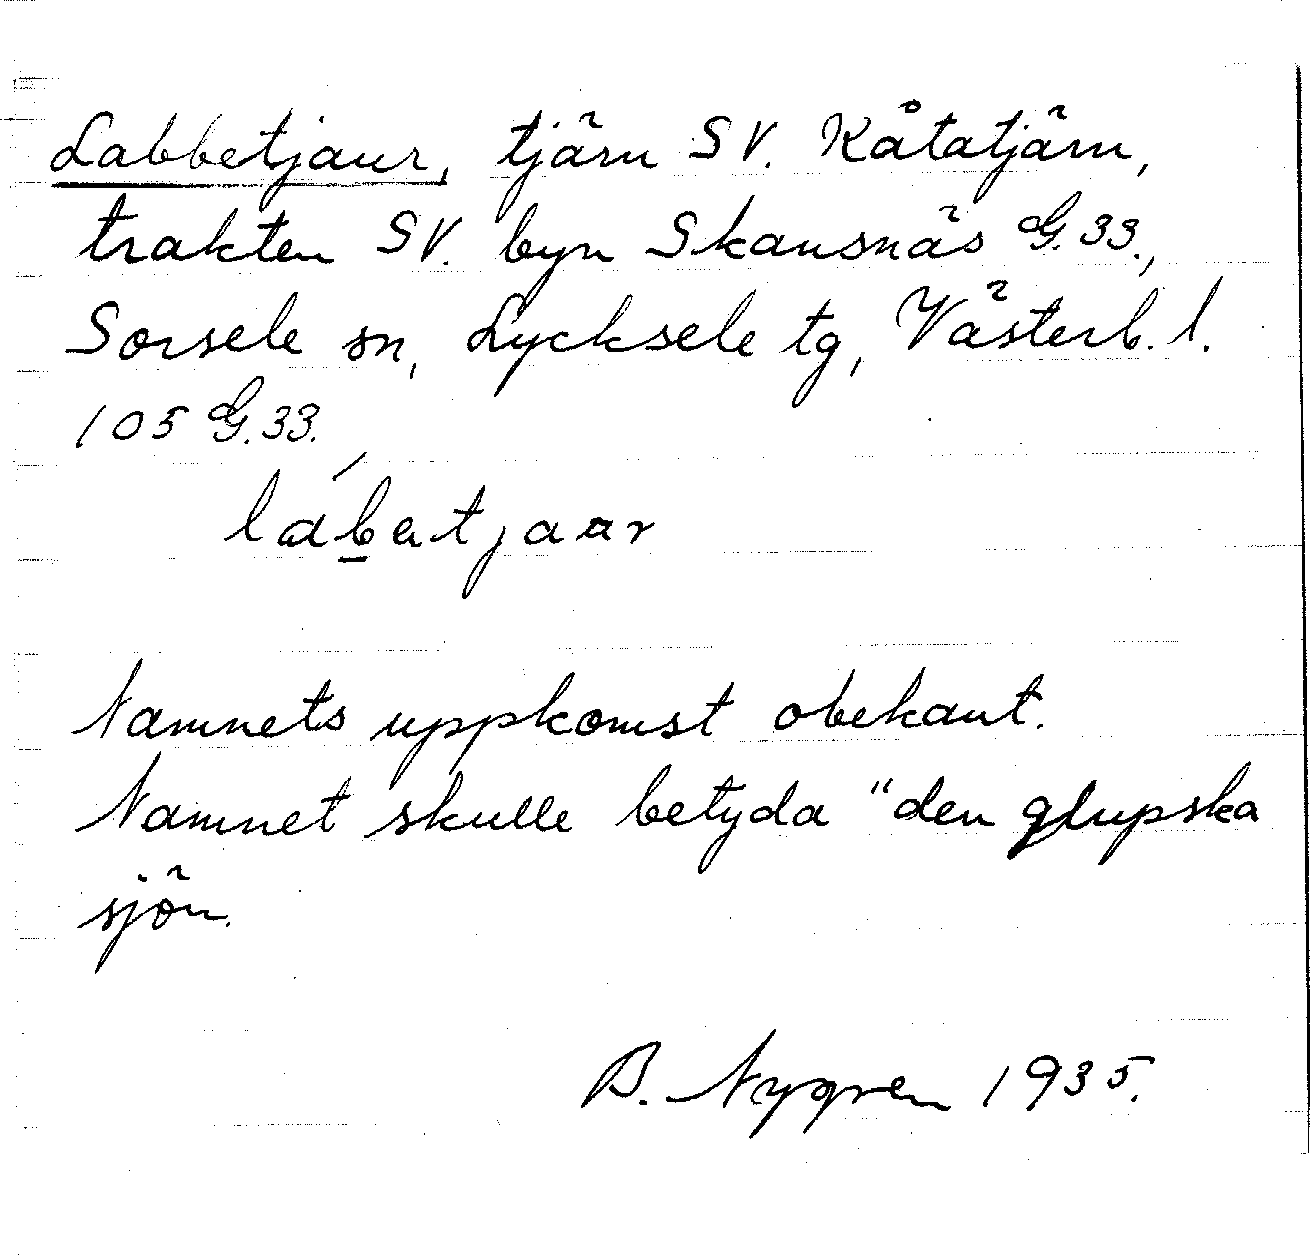 Labbetjaur, tjärn SV. Kåtatjärn,
trakten SV. byn Skansnäs G.33.,
Sorsele sn, Lycksele tg, Västerb. l.
105 G.33.
lábatjaur
Namnets uppkomst obekant.
Namnet skulle betyda "den glupska
sjön.
B. Nygren 1935.